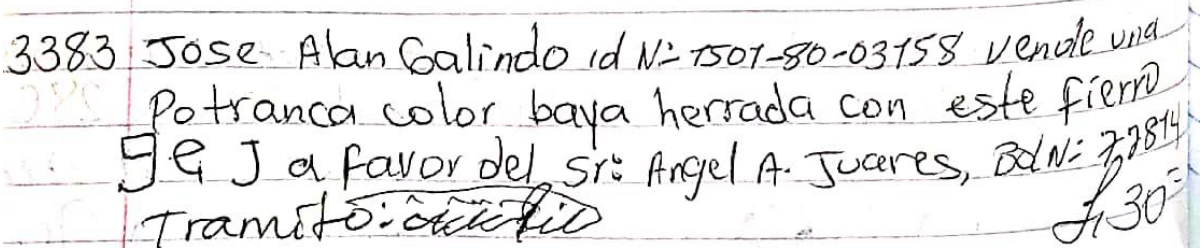 3383 Jose Alan Galindo id Nº 1501-80-03158 vende una
Potranca color baya herrada con este fierro
a favor del Sr: Angel A. Juares, Bol Nº: 77814
Tramito: L.30=